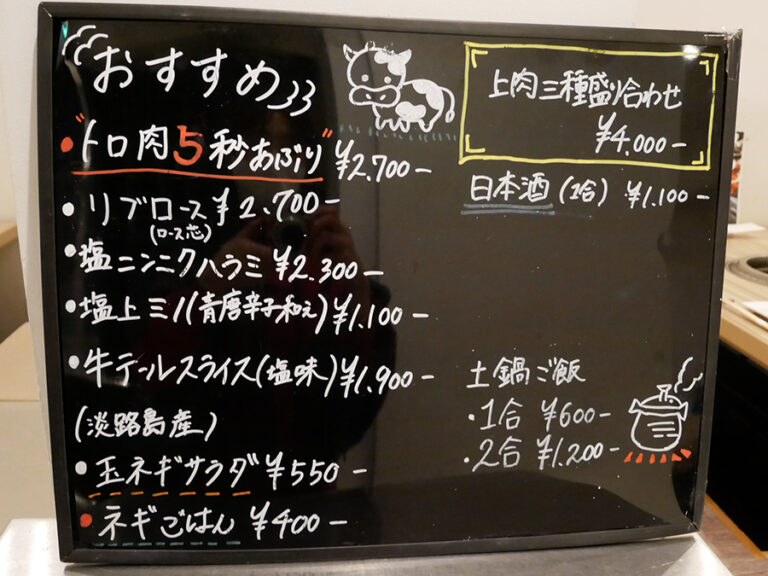 おすすめ
・"トロ肉5秒あぶり" ¥2.700-
・リブロース ¥2.700-
(ロース芯)
・塩ニンニクハラミ ¥2.300-
・塩上ミノ(青唐辛子和え) ¥1.100-
・牛テールスライス(塩味) ¥1.900-
(淡路島産)
・玉ネギサラダ ¥550-
・ネギごはん ¥400-
上肉三種盛り合わせ
¥4.000-
日本酒(1合) ¥1.100-
土鍋ご飯
・1合 ¥600-
・2合 ¥1.200-